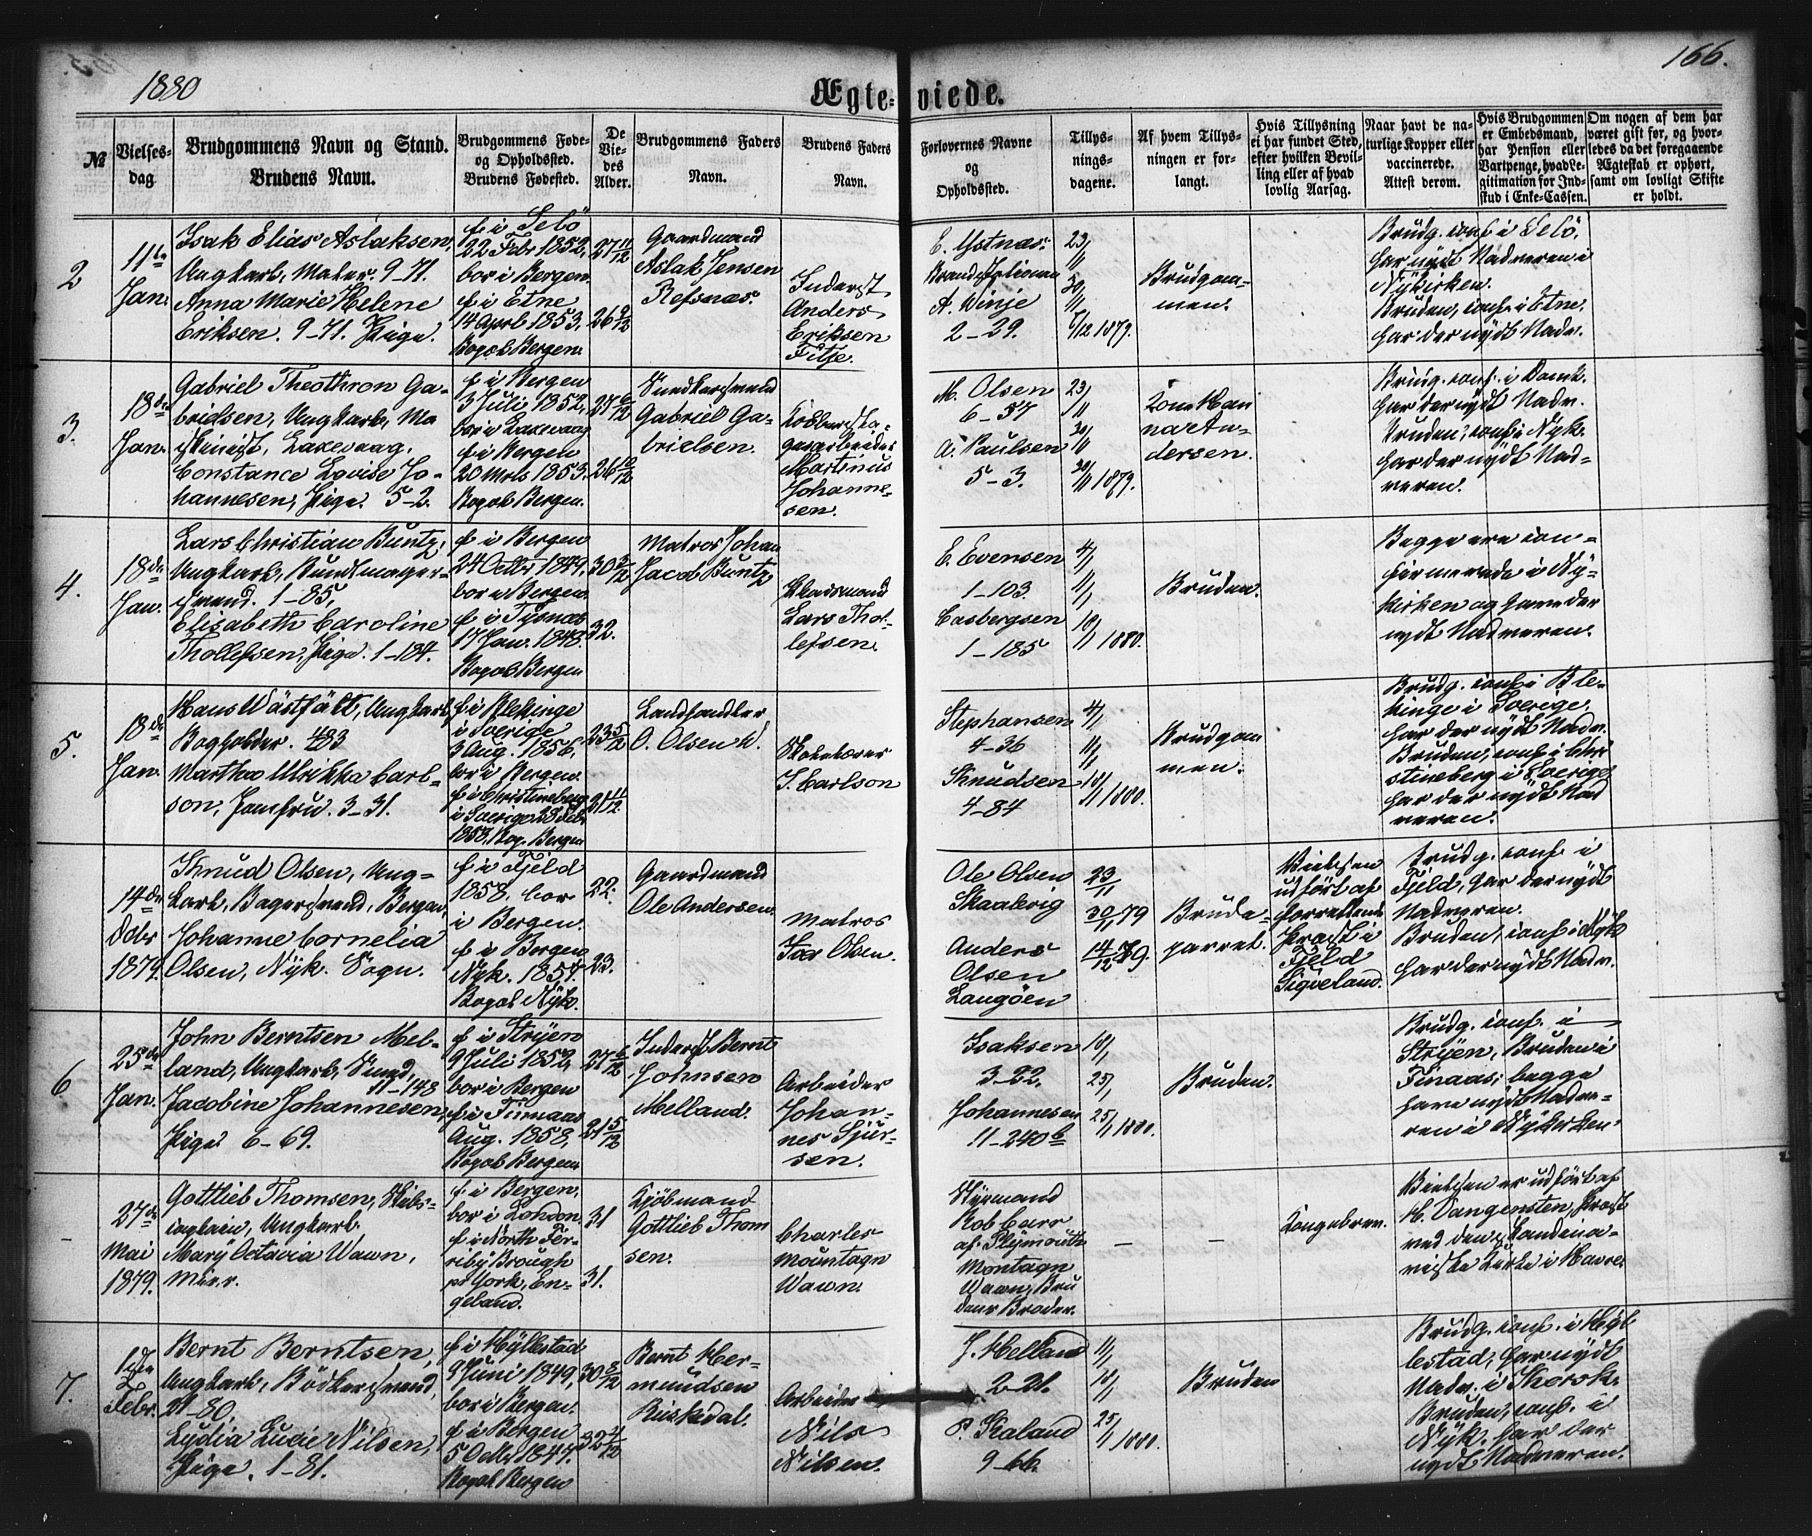 1880
166.
Ægteviede.
№
Vielses-
dag
Brudgommens Navn og Stand.
Brudens Navn.
Brudgommens Føde-
og Opholdssted.
Brudens Fødested.
De
Vie-
des
Alder.
Brudgommens Faders
Navn.
Brudens Faders
Navn.
Forlovernes Navne
og
Opholdssted.
Tillys-
nings-
dagene.
Af hvem Tillys-
ningen er for-
langt.
Hvis Tillysning
ei har fundet Sted,
efter hvilken Bevil-
ling eller af hvad
lovlig Aarsag.
Naar havt de na-
turlige Kopper eller
vaccinerede.
Attest derom.
Hvis Brudgommen
er Embedsmand,
har Pension eller
Vartpenge, hvad Le-
gitimation for Ind-
skud i Enke-Cassen.
Om nogen af dem har
været gift før, og hvor-
ledes da det foregaaende
Ægteskab er ophørt,
samt om lovligt Skifte
er holdt.
2
11te
Jan.
Isak Elias Aslaksen,
Ungkarl, Maler. 9-71.
Anna Marie Helene
Eriksen. 9-71. Pige.
f. i Selö
22 Febr 1852,
bor i Bergen.
f. i Etne
14 April 1853,
Bopæl Bergen.
27 11/12
26 9/12
Gaardmand
Aslak Jensen
Refsnæs.
Inderst
Anders
Eriksen
Fitje.
E. Ystnæs.
A. Winje
2-29.
23/11
30/11
7/12 1879.
Brudgom-
men.
Brudg. conf. i Selö,
har nydt Nadveren i
Nykirken.
Bruden, conf. i Etne,
har der nydt Nadv.
3.
18de
Jan.
Gabriel Theothron Ga-
brielsen, Ungkarl, Ma
skinist, Laxevaag,
Constance Lovise Jo-
hannesen, Pige. 5-2.
f. i Bergen
3 Juli 1852,
bor i Laxevaag
f. i Bergen
20 Mrts 1853.
Bopæl Bergen.
27 6/12
26 10/12
Gabriel Ga-
brielsen.
Martinus
Johanne-
sen.
M. Olsen
6-57
A. Paulsen
5-3.
23/11
30/11 1879.
dersen.
Brudg. conf. i Domk.
har der nydt Nadv.
Bruden, conf. i Nyk.
har der nydt Nad-
veren.
4.
18de
Jan.
Lars Christian Buntz,
Ungkarl, Buntmager-
svend. 1-85,
Elisabeth Caroline
Thollefsen, Pige. 1-184.
f. i Bergen
24 Octbr 1849,
bor i Bergen.
f. i Tysnæs
17 Jan. 1848.
Bopæl Bergen
30 3/12
32.
Matros Johan
Jacob Buntz
Lars Thol-
lefsen.
E. Evensen
1-103
Casbergsen
1-185
4/1
11/1
18/1 1880.
Bruden.
Begge ere con-
firmerede i Ny-
kirken og have der
nydt Nadveren.
5.
18de
Jan.
Hans Wästfält, Ungkarl,
Bogholder. 4-83
Martha Ulrikka Carl-
son, Jomfru. 3-31.
f. i Blekinge
i Sverige
3 Aug. 1856,
bor i Bergen.
f. i Christineberg
i Sverige 23 Febr
1858, Bop. Bergen
23 5/12
21 11/12
Landhandler
O. Olsen
J. Carlson
Stephansen
4-36
Knudsen
4-84
4/1
11/1
18/1 1880.
Brudgom
men.
Brudg. conf. i Ble-
kinge i Sverige,
har der nydt Nadv.
Bruden, conf. i Chri
stineberg i Sverige,
har der nydt Nad
veren.
14de
Dcbr
1879.
Knud Olsen, Ung-
karl, Bagersvend, Bergen,
Johanne Cornelia
Olsen, Nyk. Sogn.
f. i Fjeld
1858, bor
i Bergen.
f. i Bergen
Nyk. 1857
Bopæl Nyk.
22.
22.
Gaardmand
Ole Andersen.
Matros
Olsen.
Ole Olsen
Skaalevig
Anders
Olsen
Langöen
23/11
30/11 79
14/12 79.
Brude-
parret.
Vielsen
udført af
Præst i
Fjeld
Sigveland.
Brudg. conf. i
Fjeld, har der nydt
Nadveren.
Bruden, conf. i Nyk
har der nydt Nadv.
6
25de
Jan.
John Berntsen Mel-
land, Ungkarl, Sund,
11-148
Jacobine Johannesen,
Pige 6-69.
f. i Stryen
9 Juli 1852,
bor i Bergen
f. i Finnaas
Aug. 1858,
Bopæl Bergen
27 6/12
21 5/12
Inderst Bernt
Johnsen
Melland.
Arbeider
Johan-
nes Sjur-
sen.
Isaksen
3-22.
Johannesen
11-240b
18/1
25/1
25/1 1880.
Bruden.
Brudg. conf. i
Stryen, Bruden i
Finaas; begge
have nydt Nadve-
ren i Nykirken
-
27de
Mai
1879.
Gottlieb Thomsen, Skibs-
captain, Ungkarl
Mary Octavia Wawn,
f. i Bergen,
bor i London.
f. i North Fer-
riby Brough
pr York, En-
geland.
31
31.
Kjöbmand
Gottlieb Thom
sen.
Charles
Mountagn
Wawn.
Styrmand
Rob Carr
af Plymouth
Montagn
Wawn, Bru
dens Broder.
-
-
Kongebrev.
Vielsen er udført af
H. Vangensten, Præst
ved den skandina-
viske Kirke i Havre.
7.
1ste
Febr.
Bernt Berntsen,
Ungkarl, Bödkersvend,
21-80.
Lydia Lucie Nilsen,
Pige. 1-81.
f. i Hyllestad
9 Juni 1849,
bor i Bergen.
f. i Bergen
5 Octbr 1847.
Bopæl Bergen
30 8/12
32 4/12
Bernt Her-
mundsen
Risledal.
Arbeider
Nils
Nilsen.
J. Melland
2-21.
P. Kaland
9-66.
11/1
18/1
25/1 1880.
Bruden
Brudg. conf. i Hyl
lestad, har nydt
Nadv. i Korsk.
Bruden, conf. i
Nyk. har der
nydt Nadveren.